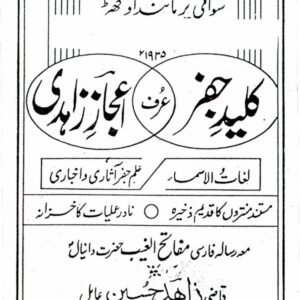 سوامی پرمانند اوگھڑ
۱۹۳۵ء
کلیدِ جفر عُرف اعجازِ زاہدی
لغاتُ الاسماء علمِ جفر آثاری و اخباری
مستند منتروں کا قدیم ذخیرہ ○ نادر عملیات کا خزانہ
معہ رسالہ فارسی مفاتح الغیب حضرت دانیالؑ
قاضی زاہد حسین عامل